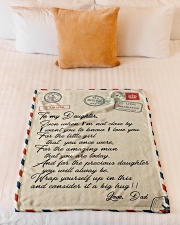 To my Daughter,
Even when I'm not close by
I want you to know I love you
For the little girl
that you once were,
For the amazing mom
that you are today,
And for the precious daughter
you will always be.
Wrap yourself up in this
and consider it a big hug!!
Love, Dad